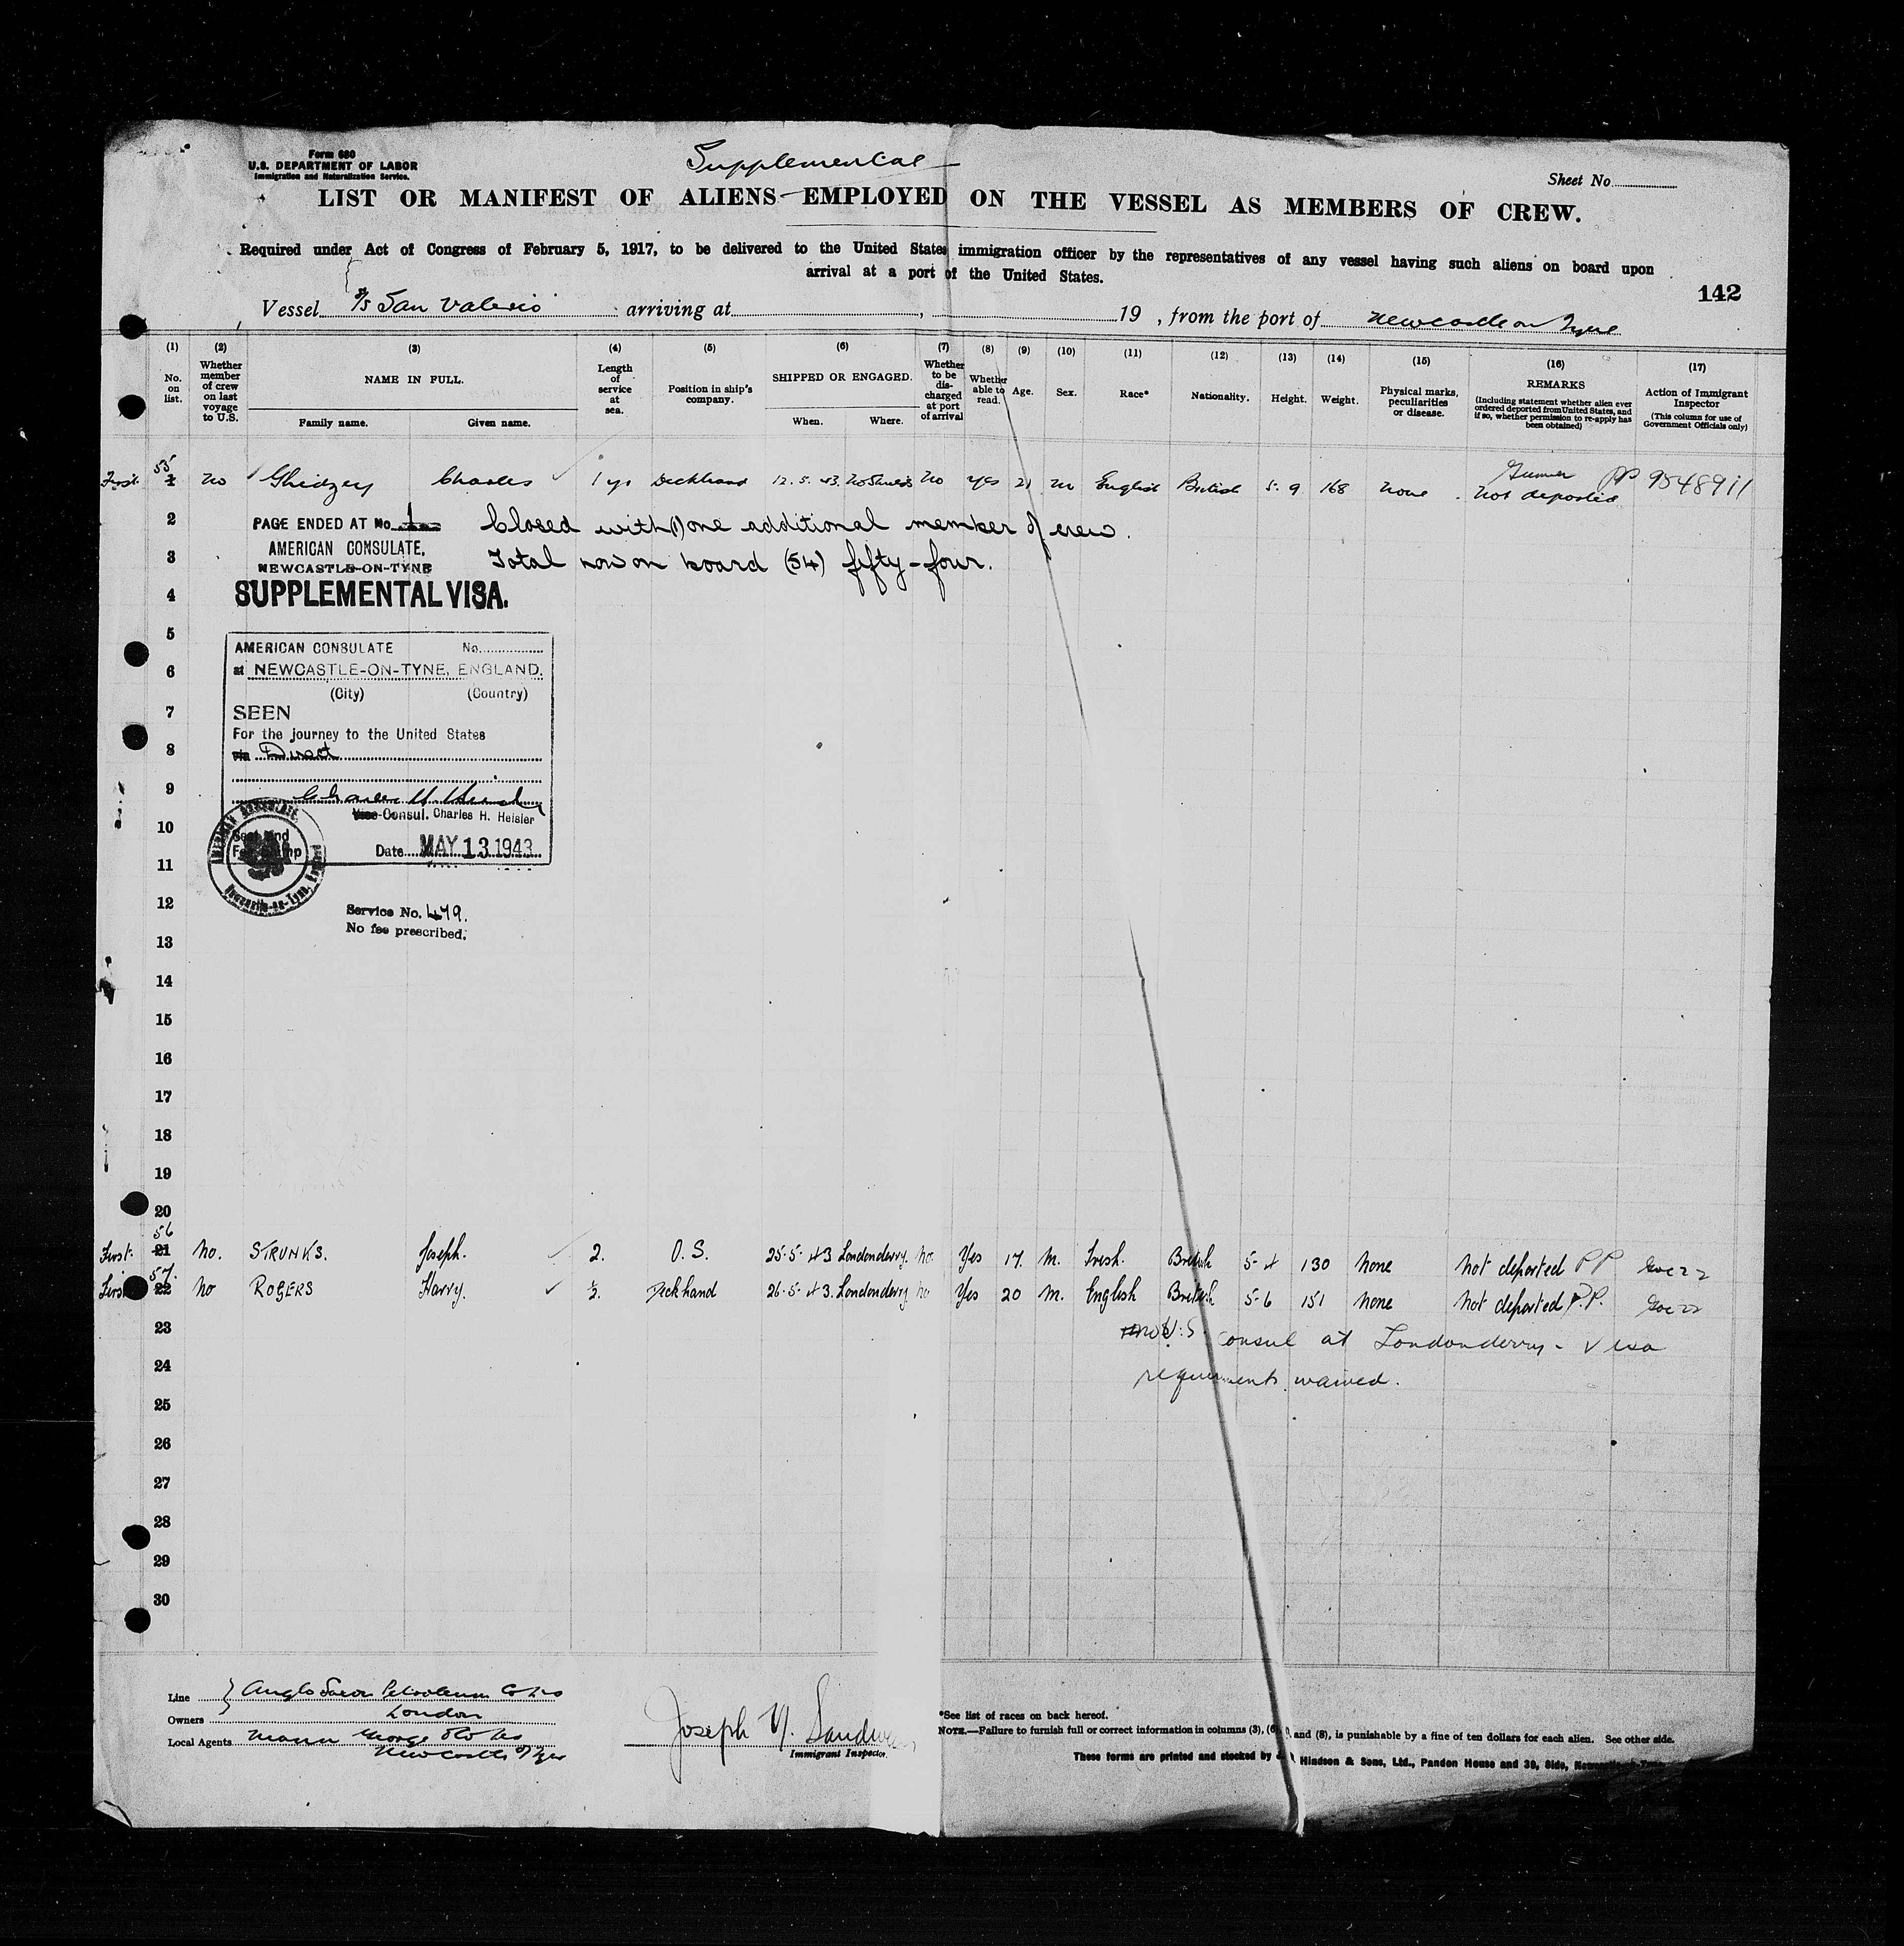 Form 680
U.S. DEPARTMENT OF LABOR
Immigration and Naturalization Service.
Supplemental
Sheet No.
LIST OR MANIFEST OF ALIENS EMPLOYED ON THE VESSEL AS MEMBERS OF CREW.
Required under Act of Congress of February 5, 1917, to be delivered to the United States immigration officer by the representatives of any vessel having such aliens on board upon
arrival at a port of the United States.
142
Vessel S/S San Valerio arriving at , 19 , from the port of Newcastle on Tyne
(1) (2) (3) (4) (5) (6) (7) (8) (9) (10) (11) (12) (13) (14) (15) (16) (17)
No. on list.
Whether member of crew on last voyage to U.S.
NAME IN FULL.
Family name. Given name.
Length of service at sea.
Position in ship's company.
SHIPPED OR ENGAGED.
When. Where.
Whether to be discharged at port of arrival
Whether able to read.
Age.
Sex.
Race*
Nationality.
Height.
Weight.
Physical marks, peculiarities or disease.
REMARKS
(Including statement whether alien ever ordered deported from United States, and if so, whether permission to re-apply has been obtained)
Action of Immigrant Inspector
(This column for use of Government Officials only)
First 55 1 No Charles 1 yr Deckhand 12. 5. 43. No Shields No yes 21 m English British 5. 9 168 None Gunner not deported PP 9548911
2 PAGE ENDED AT No. 1 Closed with (1) one additional member of crew.
3 AMERICAN CONSULATE, NEWCASTLE-ON-TYNE Total now on board (54) fifty-four.
4 SUPPLEMENTAL VISA.
5
AMERICAN CONSULATE No.
6 at NEWCASTLE-ON-TYNE, ENGLAND.
(City) (Country)
7 SEEN
For the journey to the United States
8 via Direct
9
Vice-Consul. Charles H. Heisler
10 Seal and
Fee Stamp
Date MAY 13 1943
11
AMERICAN CONSULATE Newcastle-on-Tyne, England
12 Service No. 479.
No fee prescribed.
13
14
15
16
17
18
19
20
First. 56 21 No. STRUNKS. Joseph. 2. O. S. 25-5-43 Londonderry. no Yes 17. M. Irish. British 5-4 130 None Not deported PP
First 57. 22 No ROGERS Harry. Deckhand 26-5-43. Londonderry no Yes 20 M. English British 5-6 151 None Not deported P.P.
23 no U.S. Consul at Londonderry - Visa
24 requirements waived.
25
26
27
28
29
30
Line Anglo Saxon Petroleum Co Ltd
Owners London
Local Agents Mann George & Co Ltd
Newcastle o/ Tyne
Joseph
Immigrant Inspector.
*See list of races on back hereof.
NOTE.—Failure to furnish full or correct information in columns (3), (6), and (8), is punishable by a fine of ten dollars for each alien. See other side.
These forms are printed and stocked by Hindson & Sons, Ltd., Pandon House and 39, Side,